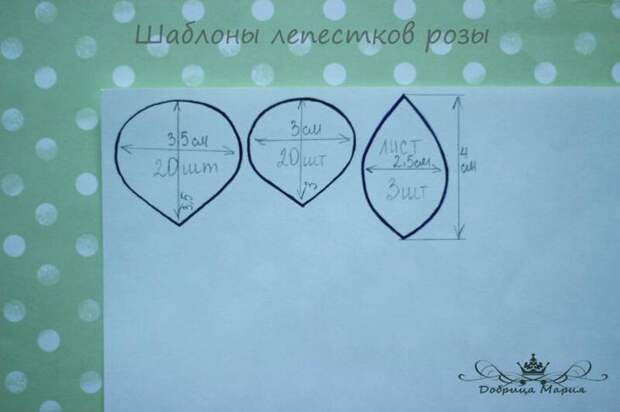 Шаблоны лепестков розы
3,5 см
20 шт
3,5
3 см
20 шт
3
лист
2,5см
3 шт
4
см
Добрица Мария